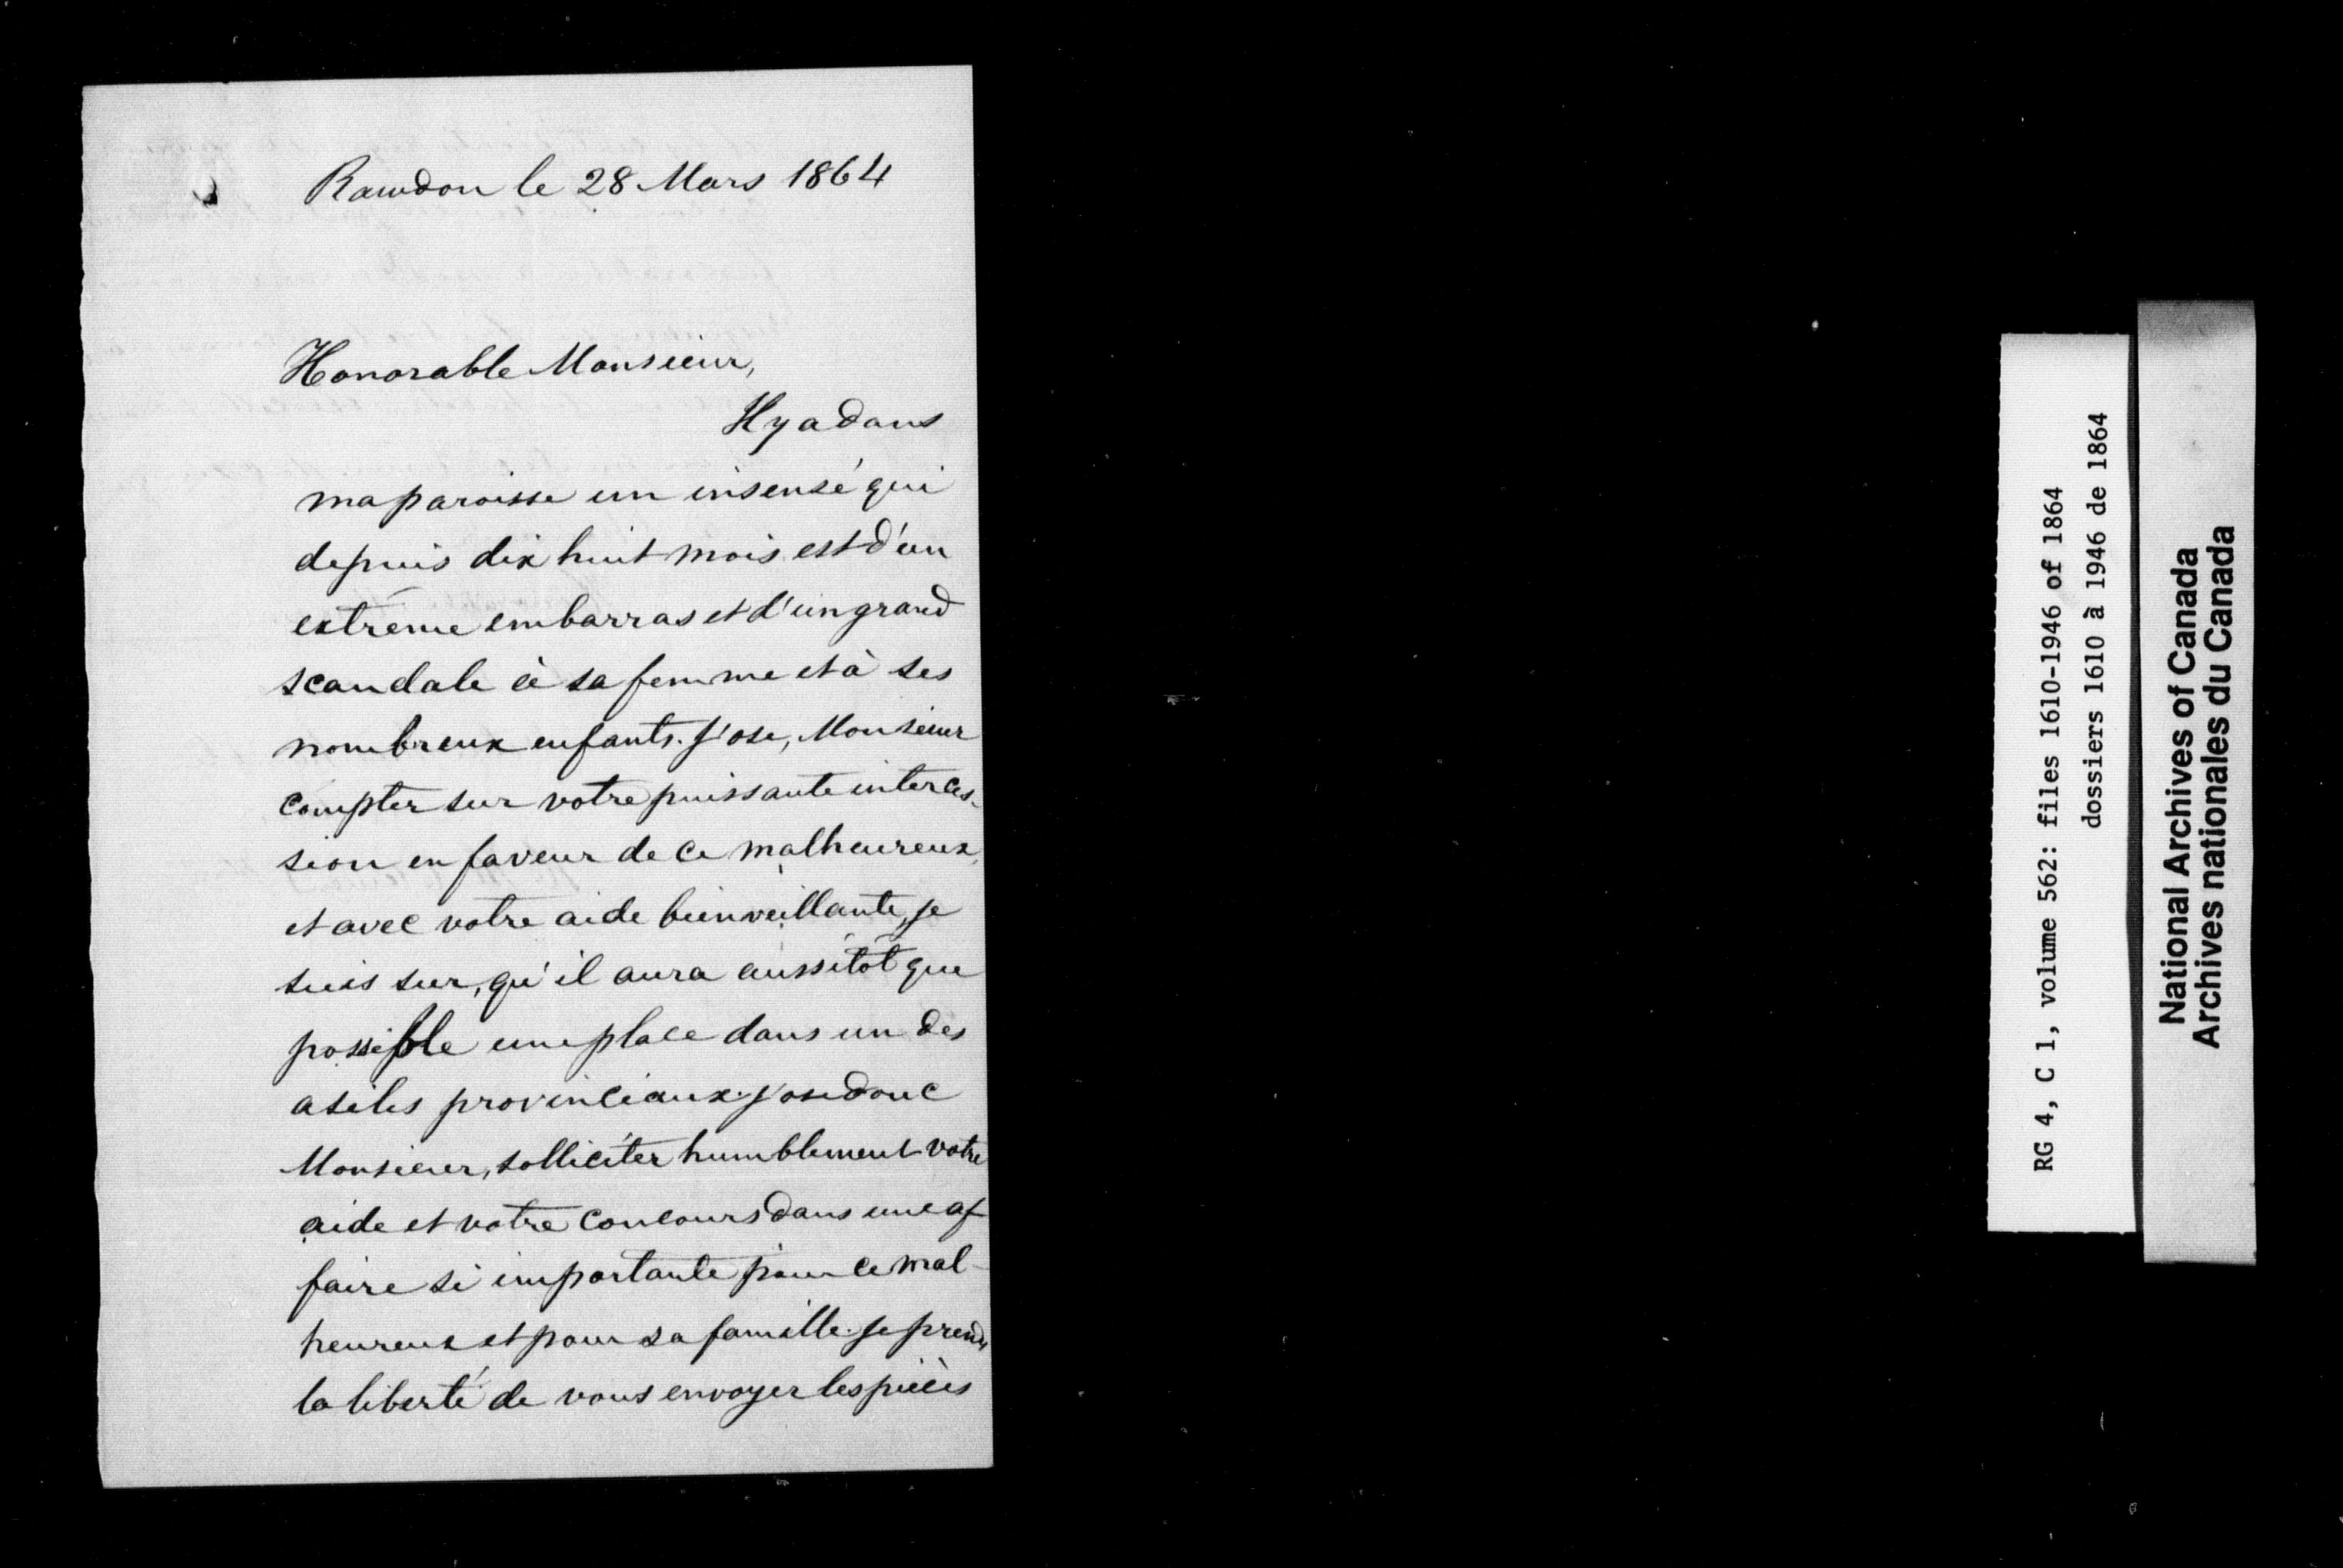 Rawdon le 28 Mars 1864
Honorable Monsieur,
Il y a dans
ma paroisse un insensé qui
depuis dix huit mois est d'un
extrême embarras et d'un grand
scandale à sa femme et à ses
nombreux enfants. J'ose, Monsieur
compter sur votre puissante interces-
sion en faveur de ce malheureux,
et avec votre aide bienveillante, je
suis sur, qu'il aura aussitôt que
possible une place dans un des
asiles provinciaux. J'ose donc
Monsieur, solliciter humblement votre
aide et votre concours dans une af
faire si importante pour ce mal-
heureux et pour sa famille. Je prends
la liberté de vous envoyer les pièces
RG 4, C 1, volume 562: files 1610-1946 of 1864
dossiers 1610 à 1946 de 1864
National Archives of Canada
Archives nationales du Canada